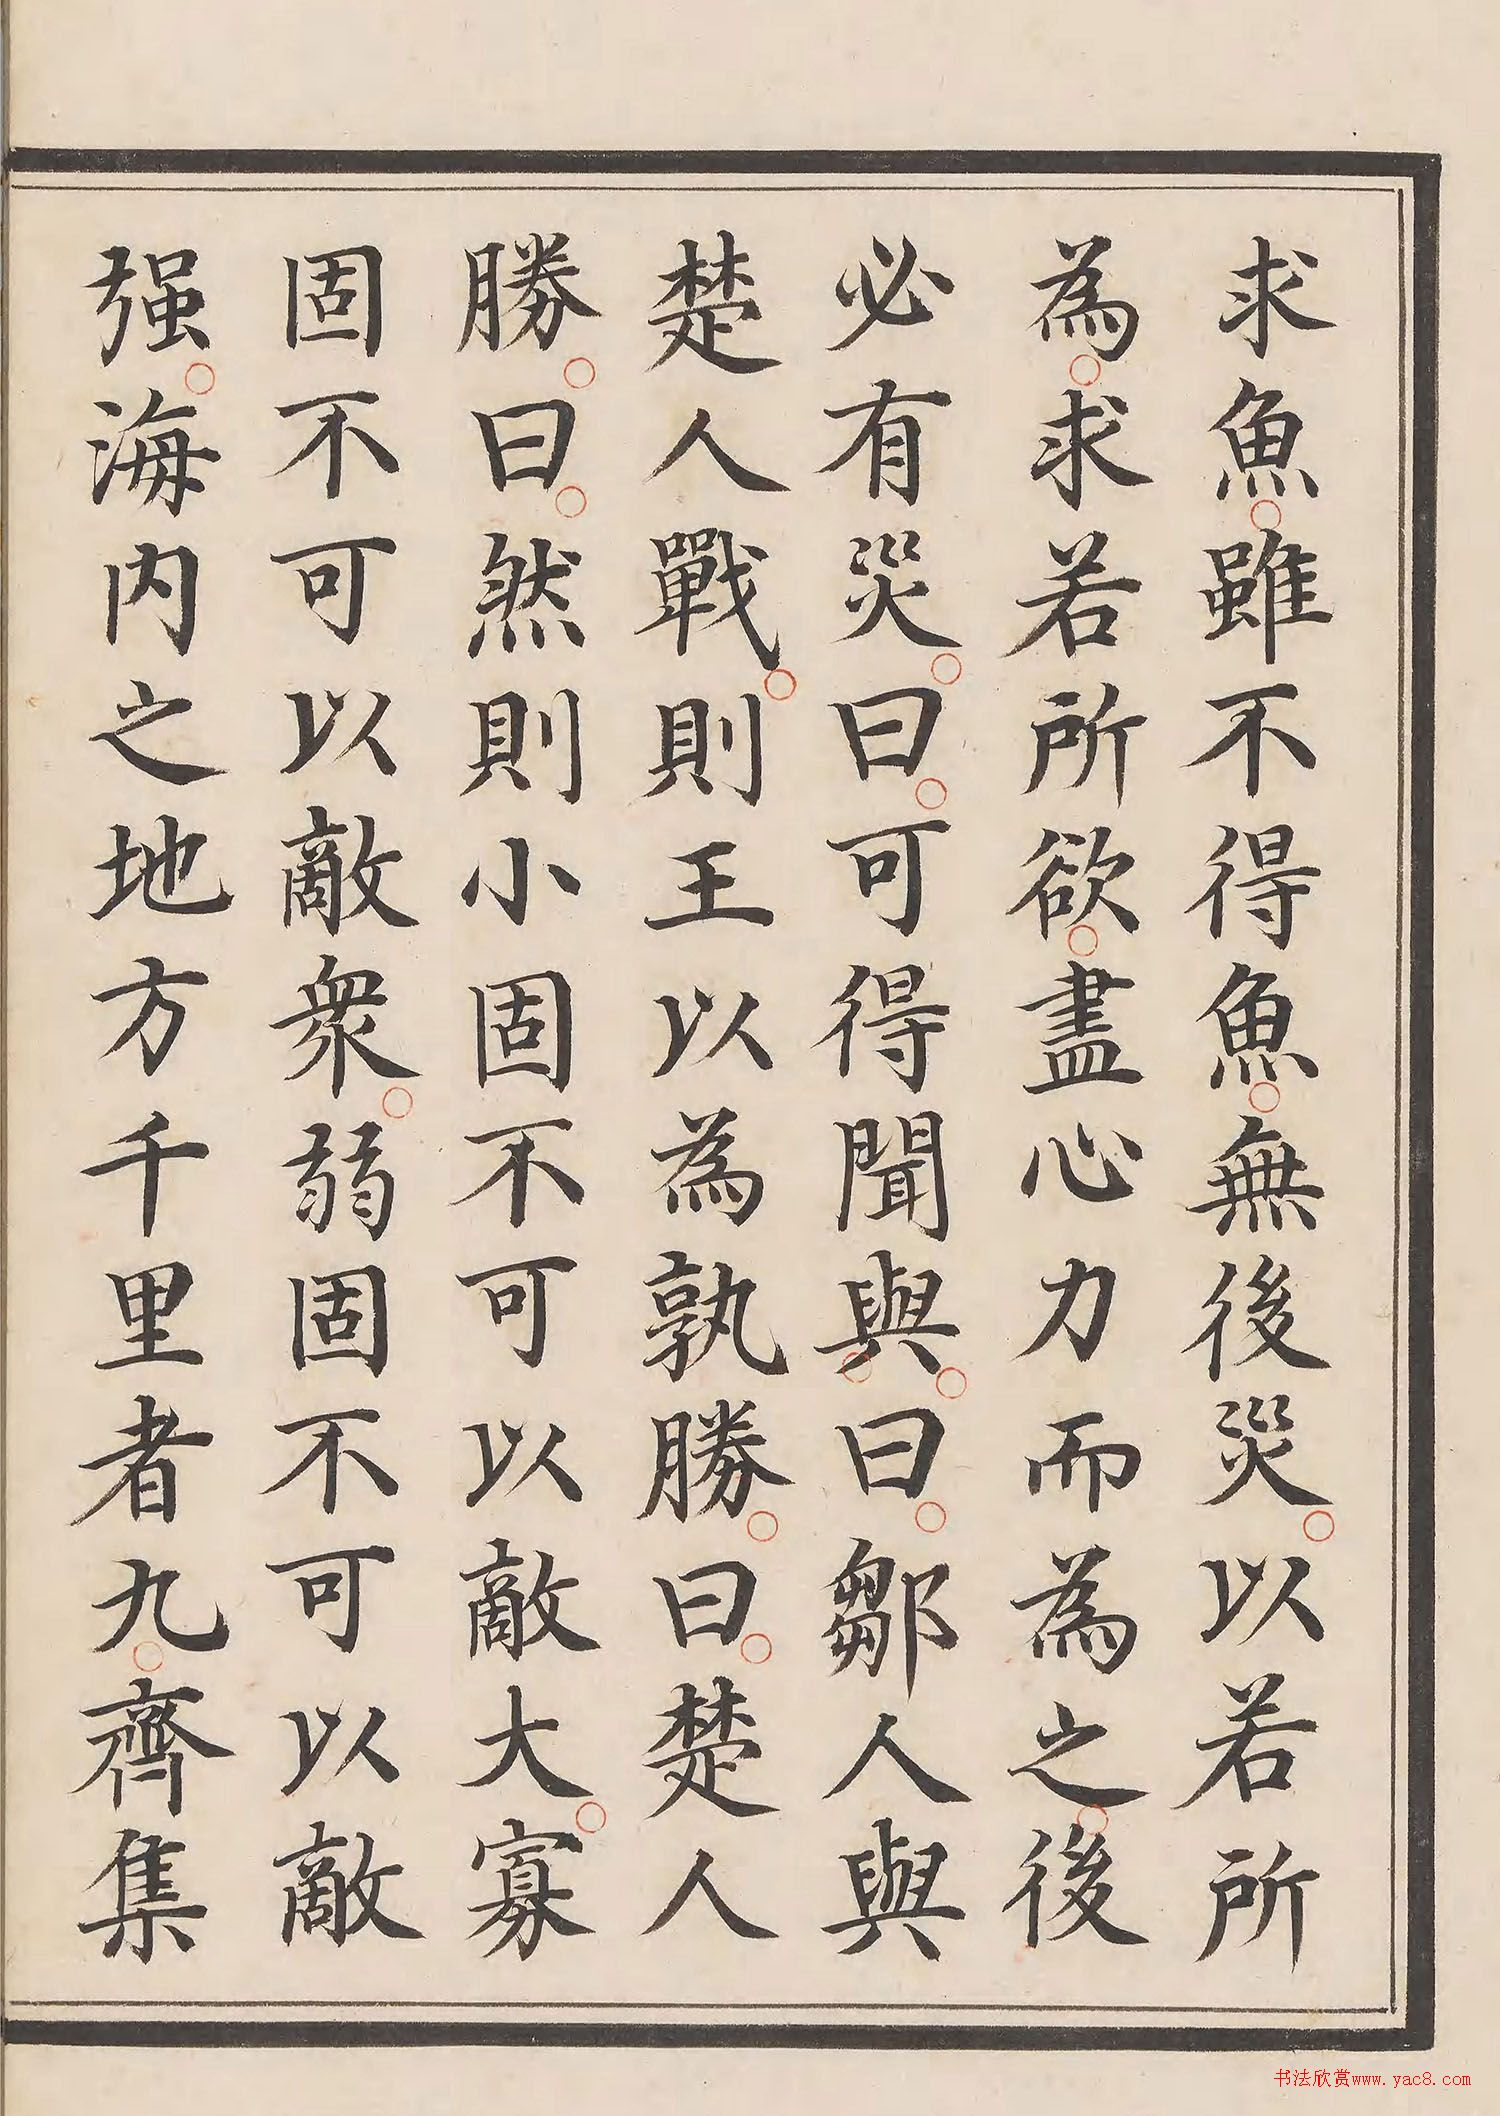 求魚雖不得魚無後災以若所
為求若所欲盡心力而為之後
必有災曰可得聞與曰鄒人與
楚人戰則王以為孰勝曰楚人
勝曰然則小固不可以敵大寡
固不可以敵衆弱固不可以敵
强海内之地方千里者九齊集
书法欣赏www.yac8.com